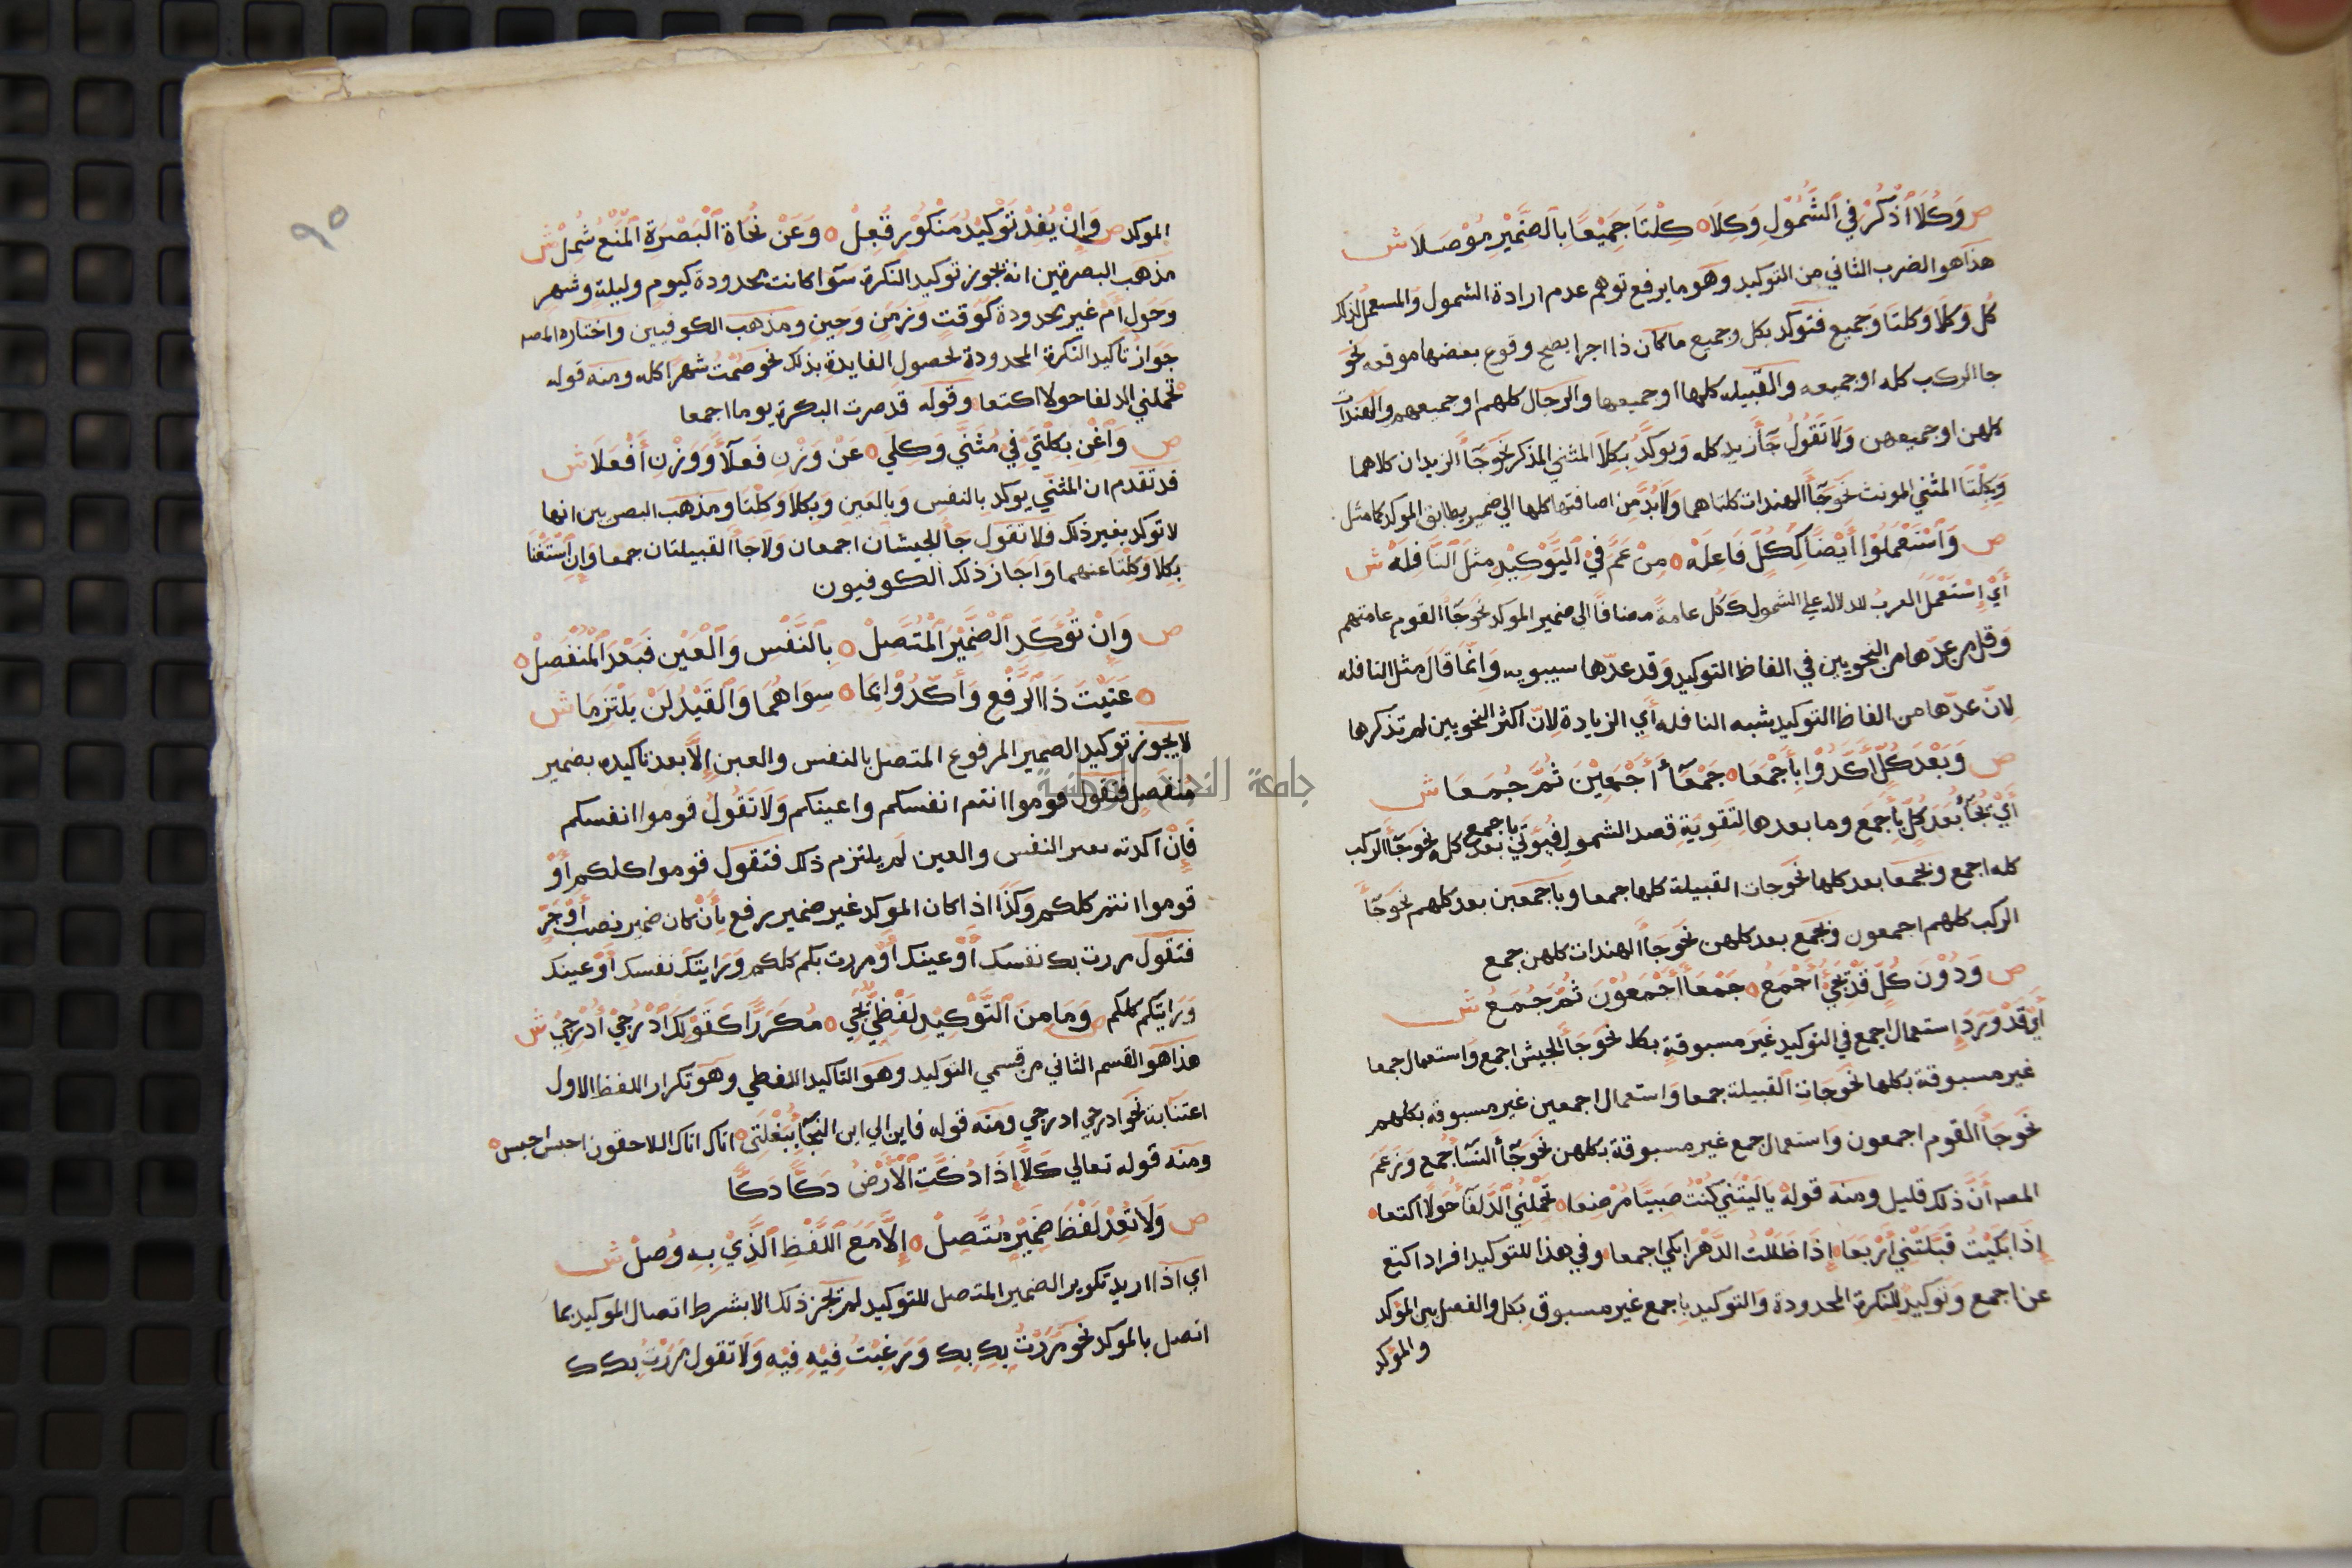 ص وَكُلّاً اذْكُرْ فِي الشُّمُوْلِ وَكِلَا ه كِلْتَا جَمِيْعًا بِالضَّمِيْرِ مُوْصَلَا ش
هذا هو الضرب الثاني من التوكيد وهو ما يرفع توهم عدم ارادة الشمول والمستعمل لذلك
كُل وَكِلَا وَكلتا وَجميع فتوكد بكل وجميع ما كان ذا اجزا يصح وقوع بعضها موقعه نحو
جا الركب كله او جميعه والقبيله كلها او جميعها والرجال كلهم او جميعهم والهندات
كلهن او جميعهن وَلا تَقُولُ جَآ زيد كله وَيوكَّدُ بِكِلَا المثني المذكر نحو جَآ الزيدان كلاهما
وَبِكِلْتَا المثني المونث نحو جَآ الهندات كلتاهما وَلَا بُدَّ مِن اضافتها كلها الي ضمير يطابق الموكد كما مثل
ص وَاسْتَعْمَلُوْا أَيْضًا كَكُلّ فَاعِلَهْ ه مِنْ عَمَّ فِيْ التَّوْكِيْدِ مِثْلَ النَّافِلَهْ ش
أَيْ إِسْتَعْمَلَ العرب للدلاله علي الشمول ككل عامة مضافاً الي ضمير الموكد نحو جَآ القوم عامتهم
وَقل من عدّها من النحويين في الفاظ التوكيد وَقد عدّها سيبويه وَانّما قَالَ مثل النافله
لِانّ عدّها من الفاظ التوكيد شبه النافله أَي الزيادة لِانّ اكثر النحويين لم تذكرها
ص وَبَعْدَ كُلّ أَكَّدُوْا بِأَجْمَعَا ه جَمْعَآءَ أَجْمَعِيْنَ ثُمَّ جُمَعَا ش
أَيْ يُجَآءُ بَعْدَ كُلّ بِأَجمع وما بعدها لِتَقويةِ قصد الشمولِ فيُؤتَي باجمع بعد كله نحو جَآ الركب
كله اجمع وبجمعا بعد كلها نحو جات القبيلة كلها جمعا وباجمعين بعد كلهم نحو جَآ
الركب كلهم اجمعون وبجمع بعد كلهن نحو جَآ الهندات كلهن جمع
ص وَدُوْنَ كُلّ قَدْ يَجِيْءُ أَجْمَعُ ه جَمْعَاءُ أَجْمَعُوْنَ ثُمَّ جُمَعُ ش
أَيْ قَدْ وَرَدَ إستعمال اجمع في التوكيد غَيرَ مسبوقةٍ بكل نحو جَآ الجيش اجمع وَاستعمال جمعا
غير مسبوقة بكلها نحو جاتِ القبيلة جمعا وَاستعمال اجمعين غير مسبوقة بكلهم
نحو جَآ القوم اجمعون وَاستعمال جمع غير مسبوقة بكلهن نحو جَآءَ النسَآءُ جُمع وَزعَمَ
المصـ أَنَّ ذلك قليل ومنه قوله يَا لَيْتَنِي كُنْتُ صَبِيًّا مُرْضِعَا ه تَحْمِلُنِي الذَّلْفَآءُ حَوْلًا اكتعا ه
إِذَا بَكَيْتُ قَبَّلَتْنِي أَرْبَعَا ه إِذَا ظَلَلْتُ الدَّهْرَ ابكي اجمعا ه وفي هذا للتوكيد افراد اكتع
عن اجمع وَتوكيد للنكرة المحدودة والتوكيد باجمع غير مسبوق بِكل والفصل بين المؤكد
والمؤكد
٩٥
الموكد ص وَإِنْ يُفِدْ تَوْكِيْدُ مَنْكُوْرٍ قُبِلْ ه وَعَنْ نُحَاةِ الْبَصْرَةِ الْمَنْعُ شُمِلْ ش
مذهب البصريين انه لا يجوز توكيد النكرة سوآ كانت محدودة كيوم وليلةٍ وشهرٍ
وحَولٍ أَمْ غير محدودة كَوَقتٍ وَزمَنٍ وحِينٍ ومذهب الكوفيين واختاره المصـ
جَوازُ تاكيد النكرةِ المحدودة لحصول الفايدة بذلك نحو صُمْتُ شهرًا كله ومنه قوله
تحملني الذلفا حولا اكتعا ه وقوله قد صرت البكرة يوما اجمعا
ص وَاغْنَ بِكِلْتَيْ فِي مُثَنًّي وَكِلَي ه عَنْ وَزْنِ فَعْلَآءَ وَوَزْنِ أَفْعَلَا ش
قد تقدم ان المثني يوكد بالنفس وَبالعَينِ وَبِكِلَا وَكِلْتَا ومذهب البصريين انها
لا توكد بغير ذلك فلا تقول جَآ الجيشان اجمعان وَلا جَآ القبيلتان جمعاوان إِسْتَغْنَا
بِكِلَا وَكِلْتَا عنهما وَاجَاز ذلك الكوفيون
ص وَإِنْ تُؤَكِّدِ الْضَّمِيْرَ الْمُتَّصِلْ ه بِالنَّفْسِ وَالْعَيْنِ فَبَعْدَ الْمُنْفَصِلْ ه
ه عَنَيْتَ ذَا الرَّفْعِ وَأَكَّدُوْا بِمَا ه سِوَاهُمَا وَالْقَيْدُ لَنْ يَلْتَزِمَا ش
لا يجوز توكيد الضمير المرفوع المتصل بالنفس والعين إِلَّا بعد تاكيده بضمير
منفصل فتقول قوموا انتم انفسكم واعينكم وَلَا تَقُولُ قوموا انفسكم
فَإِنْ اكدته بغير النفس والعين لم يلتزم ذلك فتقول قوموا كلكم أَوْ
قوموا انتم كلكم وَكَذَا اذا كان الموكد غير ضمير رفع بِأَنْ كان ضمير نصب أَوْ جَرّ
فتقول مررت بك نفسك أَوْ عينك أَوْ مررت بكم كلكم وَرايتك نفسك أَوْ عينك
وَرايتكم كلكم ص وَمَا مِنَ التَّوْكِيْدِ لَفْظِيٌّ يَجِي ه مُكَرَّرًا كَقَوْلِكَ ادْرُجِيْ ادْرُجِيْ ش
هذا هو القسم الثاني من قسمي التوكيد وهو التاكيد اللفظي وهو تكرار اللفظ الاول
اعتنا به نحو ادرجي ادرجي ومنه قوله فاين الي اين النجآ بِبَغْلَتِي ه اتاك اتاك اللاحقون احبس احبس ه
ومنه قوله تعالي كَلَّا إِذَا دُكَّتِ الْأَرْضُ دَكًّا دَكًّا
ص وَلَا تُعِدْ لَفْظَ ضَمِيْرٍ مُتَّصِلْ ه إِلَّا مَعَ اللَّفْظِ الَّذِيْ بِهِ وُصِلْ ش
اي اذا اريد تكرير الضمير المتصل للتوكيد لم تجز ذلك الا بشرط اتصال الموكيد بما
اتصل بالموكد نحو مَرَرْتُ بِكَ بِكَ وَرَغِبْتُ فِيْهِ فِيْهِ وَلَا تقول مررت بِكَ كَ
جامعة النجاح الوطنية